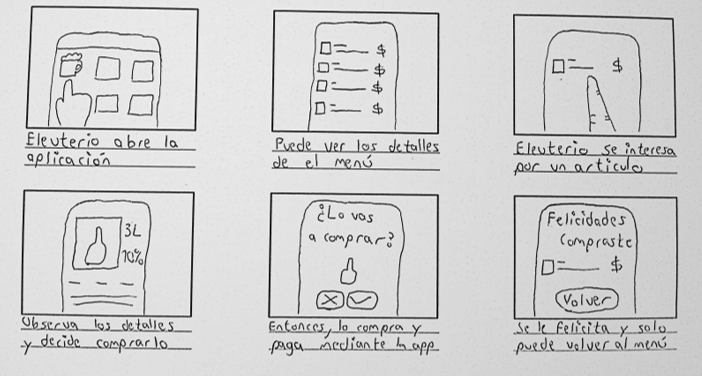 Eleuterio abre la
aplicación
$
$
$
$
Puede ver los detalles
de el menú
$
Eleuterio se interesa
por un articulo
3L
10%
Observa los detalles
y decide comprarlo
¿Lo vas
a comprar?
Entonces, lo compra y
paga mediante la app
Felicidades
Compraste
$
Volver
Se le felicita y solo
puede volver al menú